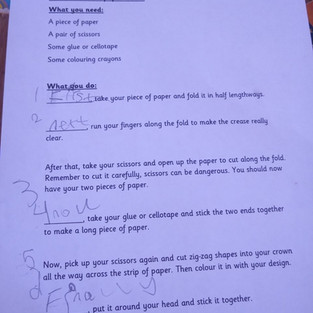 What you need:
A piece of paper
A pair of scissors
Some glue or cellotape
Some colouring crayons
What you do:
1 First take your piece of paper and fold it in half lengthways.
2 next, run your fingers along the fold to make the crease really
clear.
After that, take your scissors and open up the paper to cut along the fold.
Remember to cut it carefully, scissors can be dangerous. You should now
have your two pieces of paper.
3
4 now, take your glue or cellotape and stick the two ends together
to make a long piece of paper.
5 Now, pick up your scissors again and cut zig-zag shapes into your crown
all the way across the strip of paper. Then colour it in with your design.
, put it around your head and stick it together.